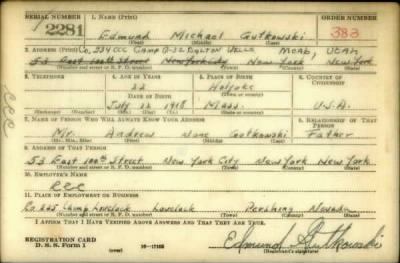 SERIAL NUMBER 1. NAME (Print) ORDER NUMBER
2281 Edmund Michael Gutkowski 383
(First) (Middle) (Last)
2. ADDRESS (Print) Co. 234 CCC Camp Wells Moab, Utah
53 East 100th Street New York City New York New York
(Number and street or R. F. D. number) (Town) (County) (State)
3. TELEPHONE 4. AGE IN YEARS 5. PLACE OF BIRTH 6. COUNTRY OF CITIZENSHIP
22 Holyoke
DATE OF BIRTH (Town or county)
July 22 1918 Mass. U.S.A.
(Exchange) (Number) (Mo.) (Day) (Yr.) (State or country)
CCC
7. NAME OF PERSON WHO WILL ALWAYS KNOW YOUR ADDRESS 8. RELATIONSHIP OF THAT PERSON
Mr. Andrew None Gutkowski Father
(Mr., Mrs., Miss) (First) (Middle) (Last)
9. ADDRESS OF THAT PERSON
53 East 100th Street New York City New York New York
(Number and street or R. F. D. number) (Town) (County) (State)
10. EMPLOYER'S NAME
CCC
11. PLACE OF EMPLOYMENT OR BUSINESS
Co 225 Camp Lovelock Lovelock Pershing Nevada
(Number and street or R. F. D. number) (Town) (County) (State)
I AFFIRM THAT I HAVE VERIFIED ABOVE ANSWERS AND THAT THEY ARE TRUE.
REGISTRATION CARD
D. S. S. Form 1 (over) 16—17105 Edmund Gutkowski
(Registrant's signature)